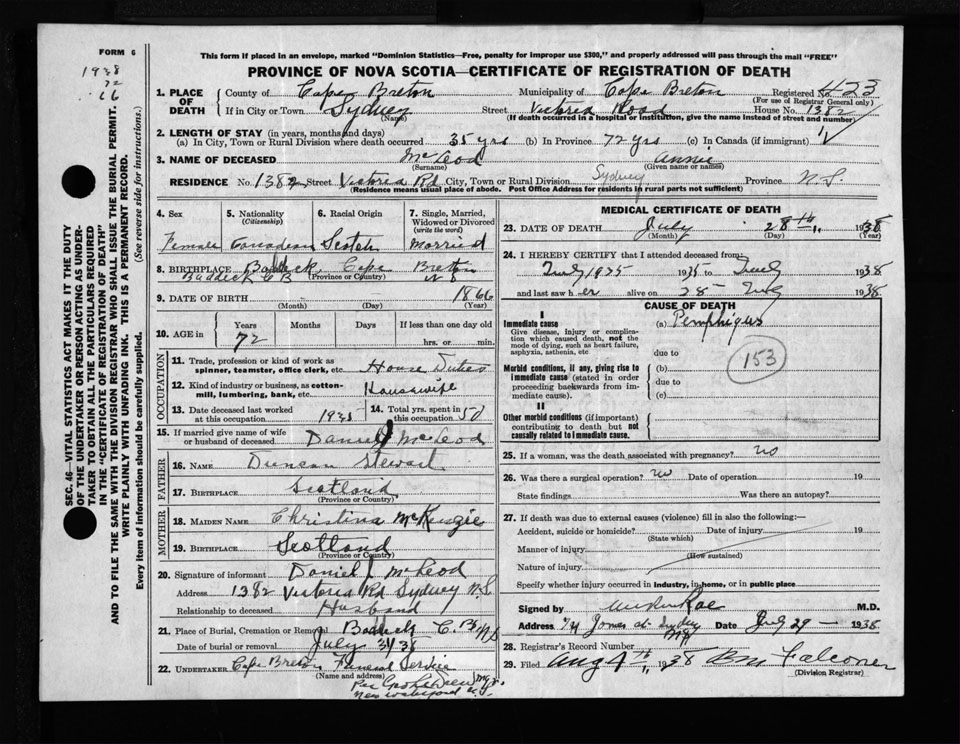 FORM 6
1938
72
66
This form if placed in an envelope, marked "Dominion Statistics—Free, penalty for improper use $300," and properly addressed will pass through the mail "FREE"
PROVINCE OF NOVA SCOTIA—CERTIFICATE OF REGISTRATION OF DEATH
1. PLACE OF DEATH County of Cape Breton Municipality of Cape Breton Registered No. 423
(For use of Registrar General only)
If in City or Town Sydney (Name) Street Victoria Road House No. 1382
(If death occurred in a hospital or institution, give the name instead of street and number)
2. LENGTH OF STAY (in years, months and days)
(a) In City, Town or Rural Division where death occurred 35 yrs (b) In Province 72 yrs (c) In Canada (if immigrant)
3. NAME OF DECEASED McLeod (Surname) Annie (Given name or names)
RESIDENCE No. 1382 Street Victoria Rd City, Town or Rural Division Sydney Province N.S.
(Residence means usual place of abode. Post Office Address for residents in rural parts not sufficient)
4. Sex Female
5. Nationality (Citizenship) Canadian
6. Racial Origin Scotch
7. Single, Married, Widowed or Divorced (write the word) Married
8. BIRTHPLACE Baddeck, Cape Breton
Baddeck C B (Province or Country) N S
9. DATE OF BIRTH (Month) (Day) 1866 (Year)
10. AGE in Years 72 Months Days If less than one day old hrs. or min.
OCCUPATION
11. Trade, profession or kind of work as spinner, teamster, office clerk, etc. House Duties
12. Kind of industry or business, as cotton-mill, lumbering, bank, etc. Housewife
13. Date deceased last worked at this occupation 1935
14. Total yrs. spent in this occupation 50
15. If married give name of wife or husband of deceased Daniel McLeod
FATHER
16. NAME Duncan Stewart
17. BIRTHPLACE Scotland
(Province or Country)
MOTHER
18. MAIDEN NAME Christina McKenzie
19. BIRTHPLACE Scotland
(Province or Country)
20. Signature of informant Daniel J McLeod
Address 1382 Victoria Rd Sydney N.S
Relationship to deceased Husband
21. Place of Burial, Cremation or Removal Baddeck C.B. NS
Date of burial or removal July 31/38
22. UNDERTAKER Cape Breton Funeral Service
(Name and address)
New Waterford
MEDICAL CERTIFICATE OF DEATH
23. DATE OF DEATH July (Month) 28th (Day) 1938 (Year)
24. I HEREBY CERTIFY that I attended deceased from
July 1935 1935 to July 1938
and last saw her alive on 28 July 1938
CAUSE OF DEATH
I
Immediate cause (a) Pemphigus
Give disease, injury or complication which caused death, not the mode of dying, such as heart failure, asphyxia, asthenia, etc
due to
153
Morbid conditions, if any, giving rise to immediate cause (stated in order proceeding backwards from immediate cause). (b)
due to
(c)
II
Other morbid conditions (if important) contributing to death but not causally related to immediate cause.
25. If a woman, was the death associated with pregnancy? No
26. Was there a surgical operation? No Date of operation 19
State findings Was there an autopsy?
27. If death was due to external causes (violence) fill in also the following:—
Accident, suicide or homicide? Date of injury 19
(State which)
Manner of injury
(How sustained)
Nature of injury
Specify whether injury occurred in industry, in home, or in public place
Signed by Rae M.D.
Address Sydney Date July 29 1938
28. Registrar's Record Number
29. Filed Aug 4th, 1938 Falconer
(Division Registrar)
SEC. 46—VITAL STATISTICS ACT MAKES IT THE DUTY
OF THE UNDERTAKER OR PERSON ACTING AS UNDER-
TAKER TO OBTAIN ALL THE PARTICULARS REQUIRED
IN THE "CERTIFICATE OF REGISTRATION OF DEATH"
AND TO FILE THE SAME WITH THE DIVISION REGISTRAR WHO SHALL ISSUE THE BURIAL PERMIT.
WRITE PLAINLY WITH UNFADING INK. THIS IS A PERMANENT RECORD.
Every item of information should be carefully supplied. (See reverse side for instructions.)